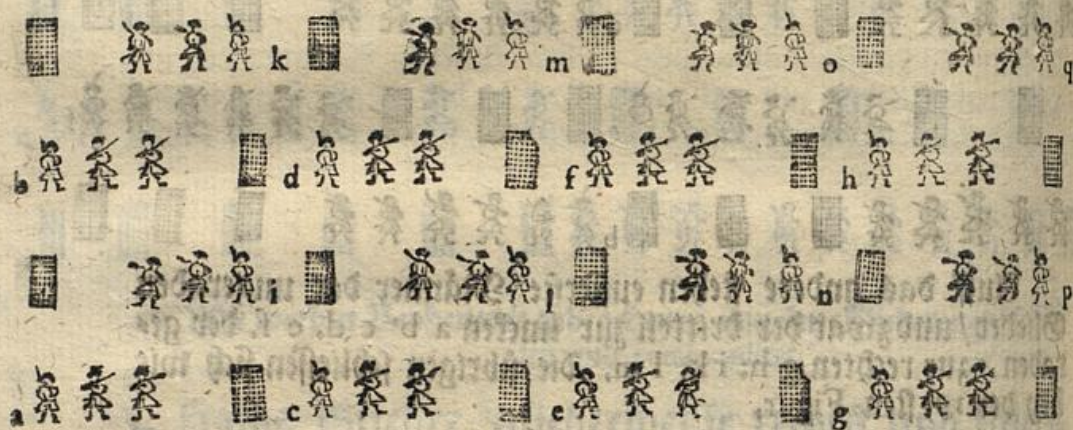 k m o q
b d f h
i l n p
a c e g